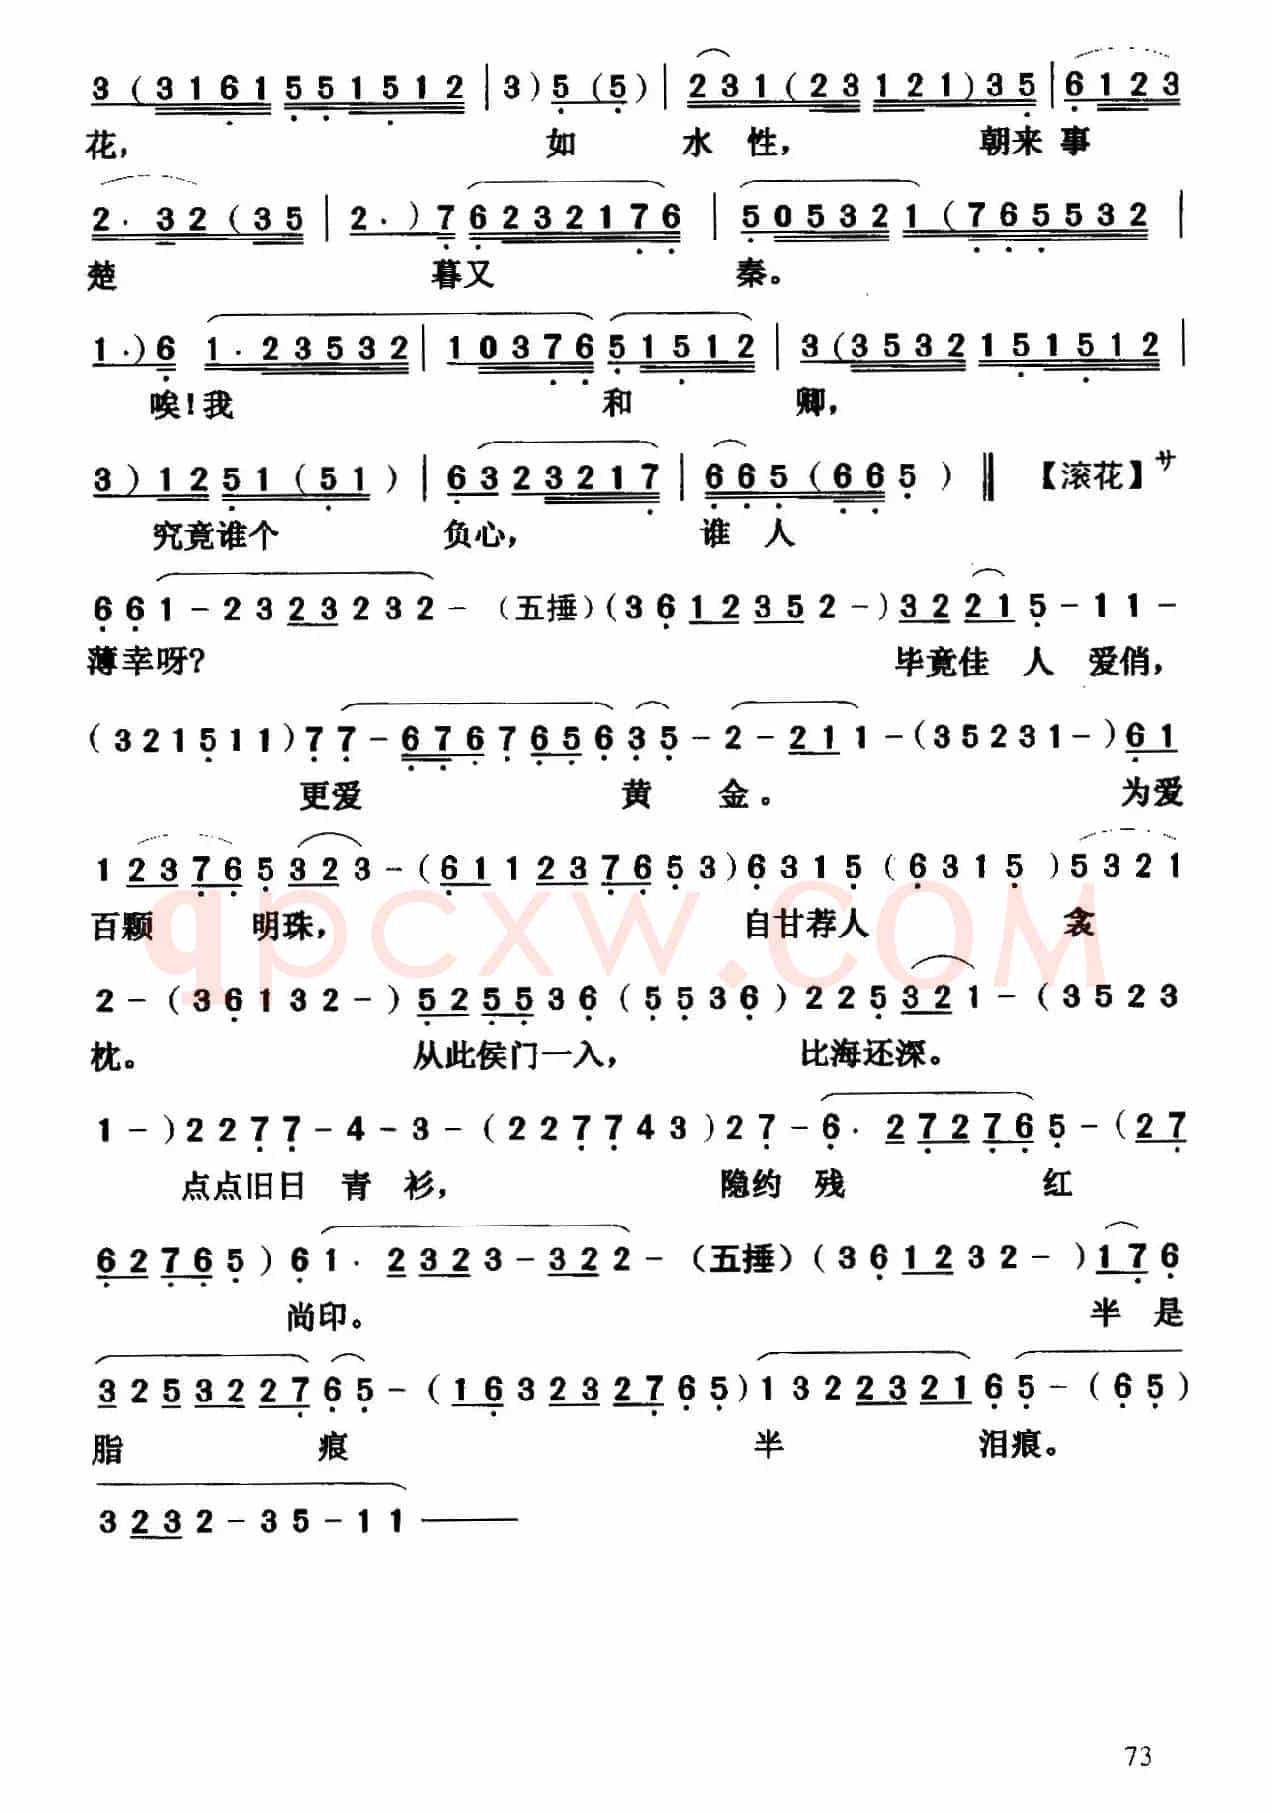 3 (3 1 6 1 5 5 1 5 1 2 | 3) 5 (5) | 2 3 1 (2 3 1 2 1) 3 5 | 6 1 2 3
花, 如 水 性, 朝来 事
2 · 3 2 (3 5 | 2 · ) 7 6 2 3 2 1 7 6 | 5 0 5 3 2 1 (7 6 5 5 3 2 |
楚 暮又 秦。
1 · ) 6 1 · 2 3 5 3 2 | 1 0 3 7 6 5 1 5 1 2 | 3 (3 5 3 2 1 5 1 5 1 2 |
唉!我 和 卿,
3 ) 1 2 5 1 (5 1 ) | 6 3 2 3 2 1 7 | 6 6 5 (6 6 5 ) ‖ 【滚花】サ
究竟谁个 负心, 谁 人
6 6 1 - 2 3 2 3 2 3 2 - (五捶) (3 6 1 2 3 5 2 -) 3 2 2 1 5 - 1 1 -
薄幸呀? 毕竟佳 人 爱俏,
(3 2 1 5 1 1) 7 7 - 6 7 6 7 6 5 6 3 5 - 2 - 2 1 1 - (3 5 2 3 1 -) 6 1
更爱 黄 金。 为爱
1 2 3 7 6 5 3 2 3 - (6 1 1 2 3 7 6 5 3) 6 3 1 5 (6 3 1 5 ) 5 3 2 1
百颗 明珠, 自甘荐人 衾
qpcxw.COM
2 - (3 6 1 3 2 -) 5 2 5 5 3 6 (5 5 3 6 ) 2 2 5 3 2 1 - (3 5 2 3
枕。 从此侯门一入, 比海还深。
1 - ) 2 2 7 7 - 4 - 3 - (2 2 7 7 4 3 ) 2 7 - 6 · 2 7 2 7 6 5 - (2 7
点点旧日 青 衫, 隐约 残 红
6 2 7 6 5 ) 6 1 · 2 3 2 3 - 3 2 2 - (五捶) (3 6 1 2 3 2 - ) 1 7 6
尚印。 半 是
3 2 5 3 2 2 7 6 5 - (1 6 3 2 3 2 7 6 5) 1 3 2 2 3 2 1 6 5 - (6 5 )
脂 痕 半 泪痕。
3 2 3 2 - 3 5 - 1 1 ——
73